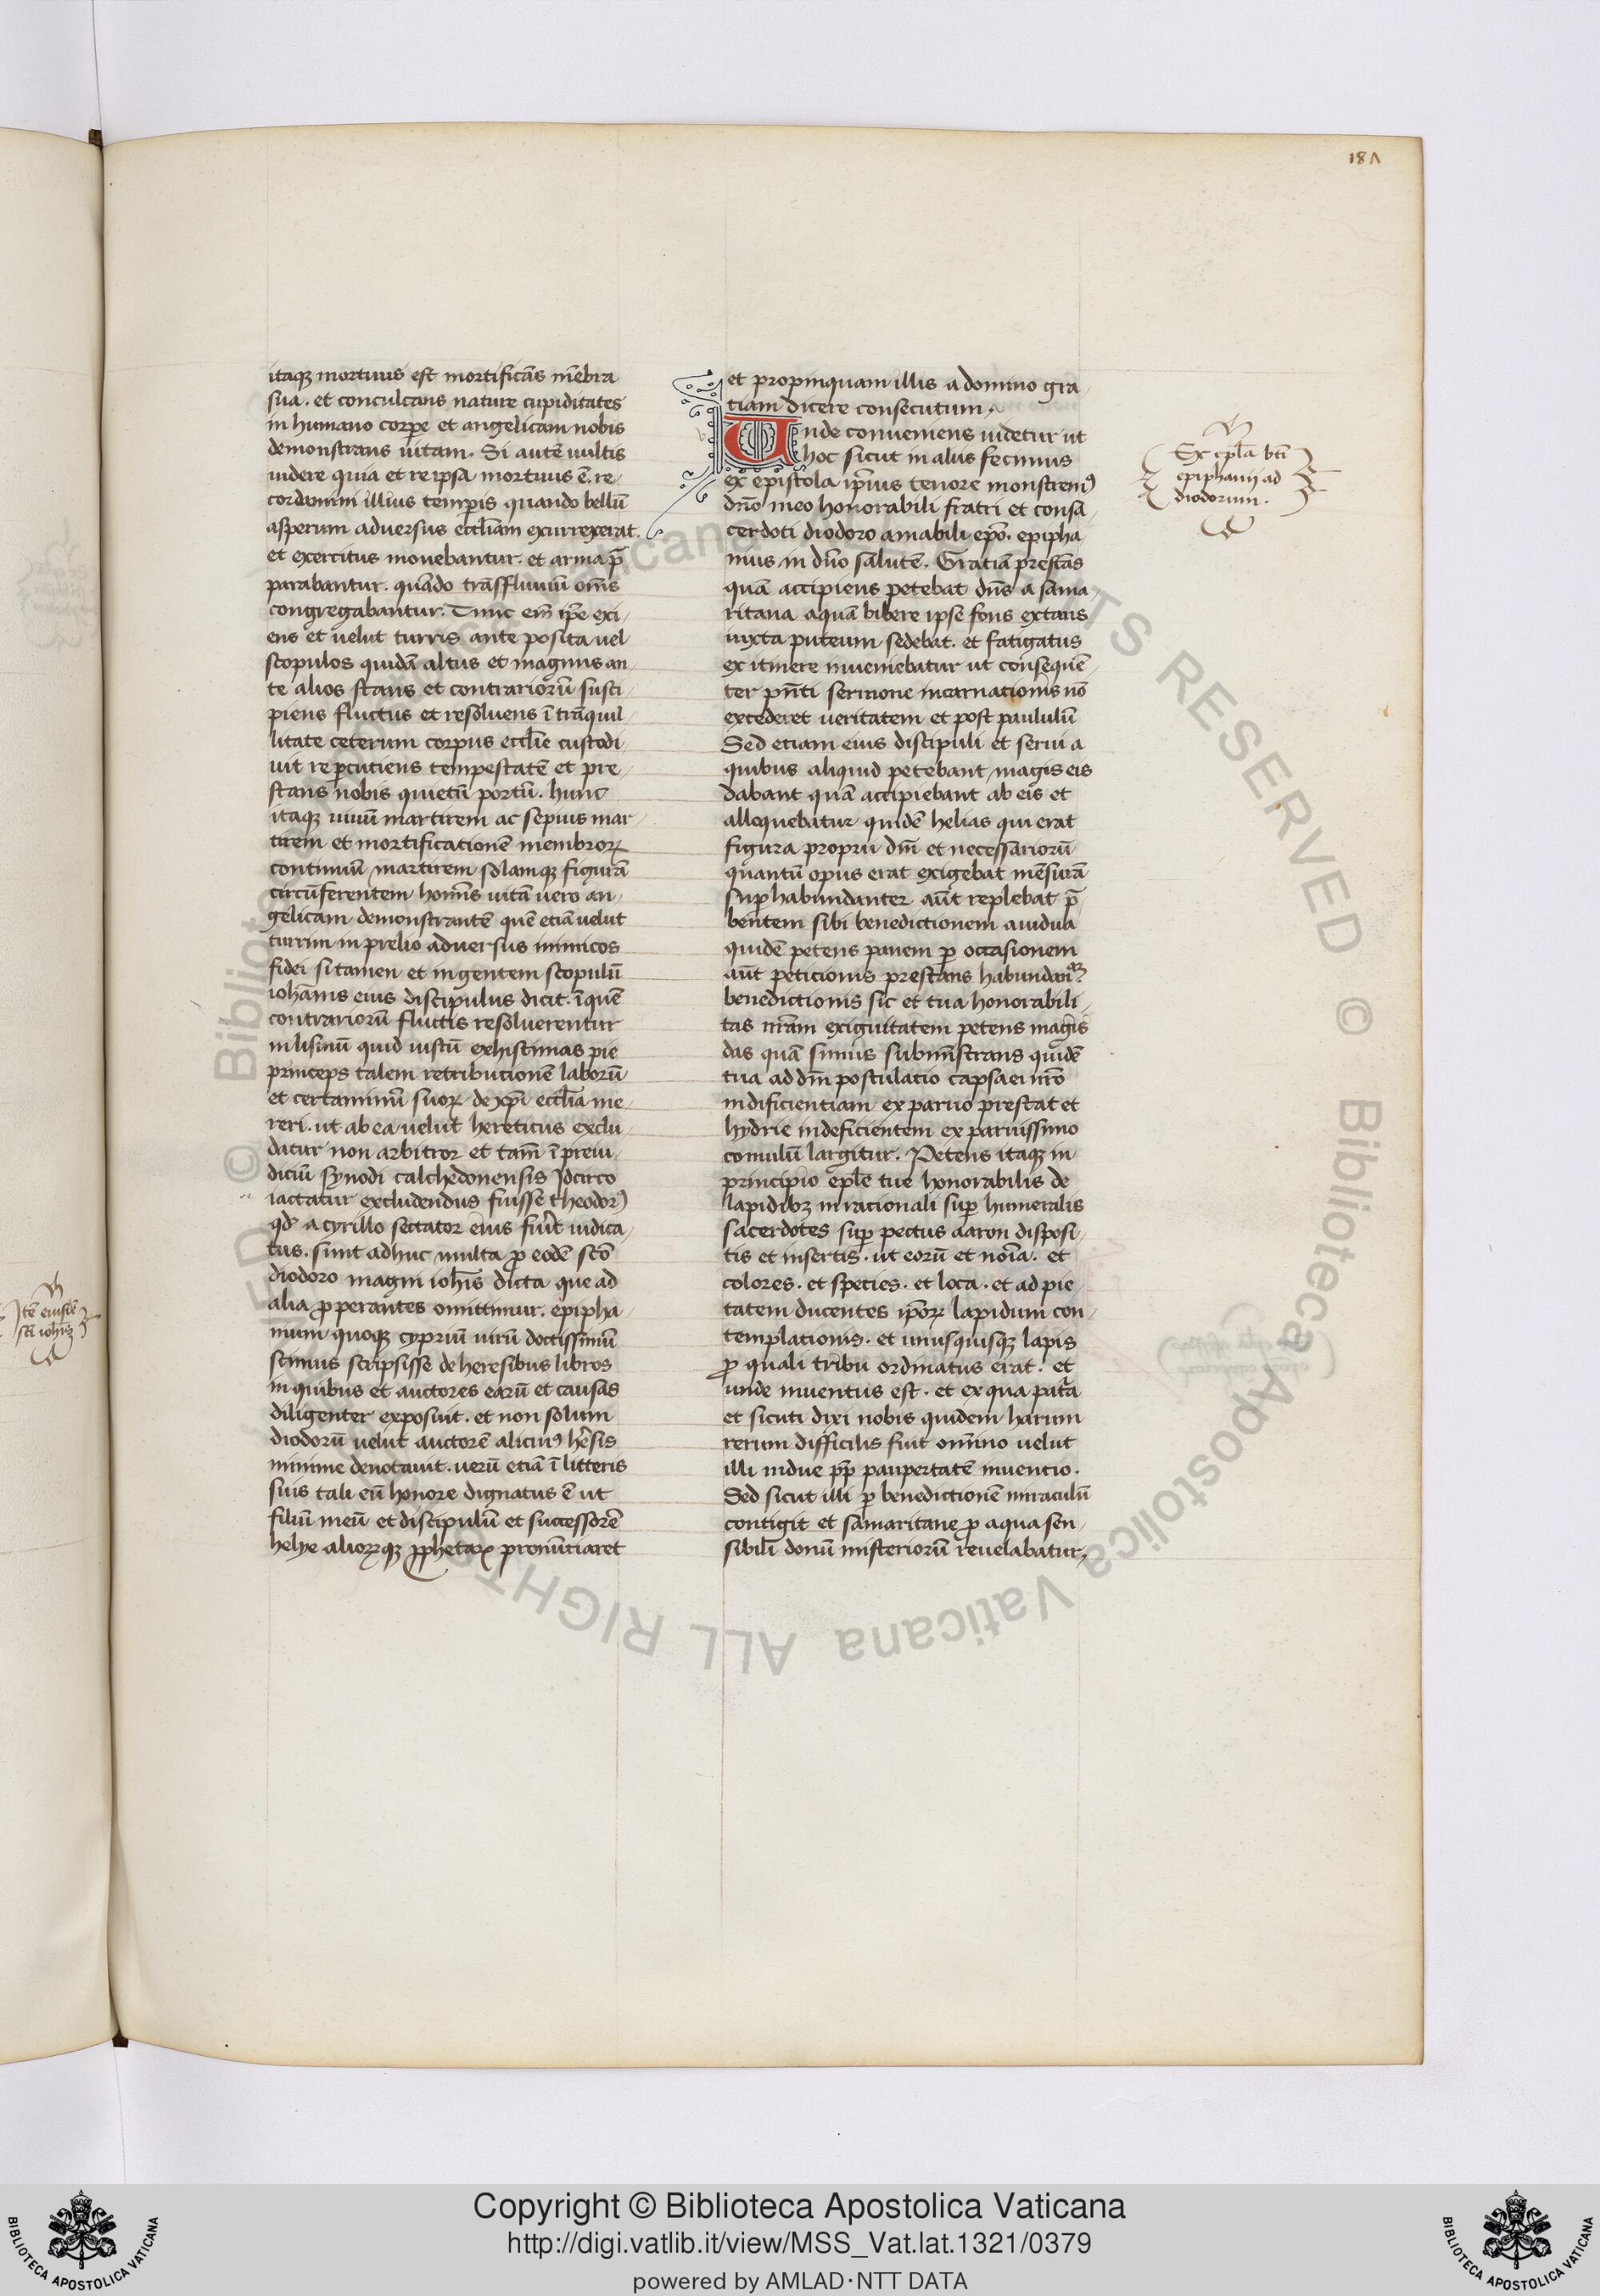 187
itaqꝫ mortuus est mortificãs mẽbra
sua. et conculcans nature cupiditates
in humano corpe et angelicam nobis
demonstrans uitam. Si autẽ uultis
uidere quia et re ipsa mortuus ẽ. re
cordamini illius temporis quando bellũ
asperum aduersus eccliam exurrexerat.
et exercitus mouebantur. et arma p̃
parabantur. quãdo trãsfluuiũ om̃s
congregabantur. Tunc em̃ ip̃e exi
ens et uelut turris ante posita uel
scopulos quidã altus et magnus an
te alios stans et contrariorũ susci
piens fluctus et resoluens ĩ trãquil
litate ceterum corpus ecclie custodi
uit repcutiens tempestatẽ et pre
stans nobis quietũ portũ. hunc
itaqꝫ uiuũ martirem ac sepius mar
tirem et mortificationẽ membroꝝ
continuũ martirem solamqꝫ figurã
circũferentem homĩs uitã uero an
gelicam demonstrantẽ quẽ etiã uelut
turrim in prelio aduersus inimicos
fidei si tamen et ingentem scopulũ
iohãnis eius discipulus dicit. ĩ quẽ
contrariorũ fluctis resoluerentur
nihsinũ quid iustũ exhistimas pie
princeps talem retributionẽ laborũ
et certaminũ suoꝝ de xp̃i ecclia me
reri. ut ab ea uelut hereticus exclu
datur non arbitror et tam̃ ĩ preiu
diciũ synodi calchedonensis Idcirco
iactatur excludendus fuisse theodorꝰ
qd̓ a cyrillo sectator eius fu̓it iudica
tus. sunt adhuc multa p̱ eodẽ sc̃o
diodoro magni ioh̃is dicta que ad
alia p̱perantes omittimur. epipha
nium quoqꝫ cypriũ uirũ doctissimũ
scimus scripsisse de heresibus libros
in quibus et auctores earũ et causas
diligenter exposuit. et non solum
diodorũ uelut auctorẽ alicuiꝰ he̓sis
minime denotauit. uerũ etiã ĩ litteris
suis tali eũ honore dignatus ẽ ut
filiũ meũ et discipulũ et successorẽ
helye alioꝝqꝫ p̱phetaꝝ pronũtiaret
et propinquam illis a domino gra
tiam dicere consecutum
Unde conueniens uidetur ut
hoc sicut in aliis fecimus
ex epistola ip̃ius tenore monstremꝰ
dño meo honorabili fratri et consa
cerdoti diodoro amabili ep̃o. epipha
nius in dño salutẽ. Gratiã prestãs
quã accipiens petebat dñs a sama
ritana aquã bibere ipse fons extans
iuxta puteum sedebat. et fatigatus
ex itinere inueniebatur ut consequẽ
ter pñti sermone incarnationis nõ
excederet ueritatem et post paululũ
Sed etiam eius discipuli et serui a
quibus aliquid petebant magis eis
dabant quã accipiebant ab eis et
alloquebatur quidẽ helias qui erat
figura proprii dñi et necessariorũ
quantũ opus erat exigebat mẽsurã
suphabundanter aũt replebat p̃
bentem sibi benedictionem auidua
quidẽ petens panem p occasionem
aũt peticionis prestans habundan
benedictionis sic et tua honorabili
tas nr̃am exiguitatem petens magis
das quã sumis submĩstrans quidẽ
tua ad dñm postulatio capsaei nr̃o
indificientiam ex paruo prestat et
hydrie indeficientem ex paruissimo
comulũ largitur. Petens itaqꝫ in
principio epl̃e tue honorabilis de
lapidibꝫ in racionali sup humeralis
sacerdotes sup pectus aaron disposi
tis et insertis. ut eorũ et noĩa. et
colores. et species. et loca. et ad pie
tatem ducentes ip̃oꝝ lapidum con
templationis. et unusquisqꝫ lapis
p̱ quali tribu ordinatus erat. et
unde inuentus est. et ex qua patria
et sicuti dixi nobis quidem harum
rerum difficilis fuit omnino uelut
illi uidue p̱p paupertatẽ inuentio.
Sed sicut illi p benedictionẽ miraculũ
contigit et samaritane p̱ aqua sen
sibili donũ misteriorũ reuelabatur
Ex epl̃a bt̃i
epiphanij ad
diodorum.
Itẽ eiusdẽ
sc̃i ioh̃is
© Biblioteca Apostolica Vaticana ALL RIGHTS RESERVED © Biblioteca Apostolica Vaticana ALL RIGHTS RESERVED
Copyright © Biblioteca Apostolica Vaticana
http://digi.vatlib.it/view/MSS_Vat.lat.1321/0379
powered by AMLAD·NTT DATA
BIBLIOTECA APOSTOLICA VATICANA
BIBLIOTECA APOSTOLICA VATICANA